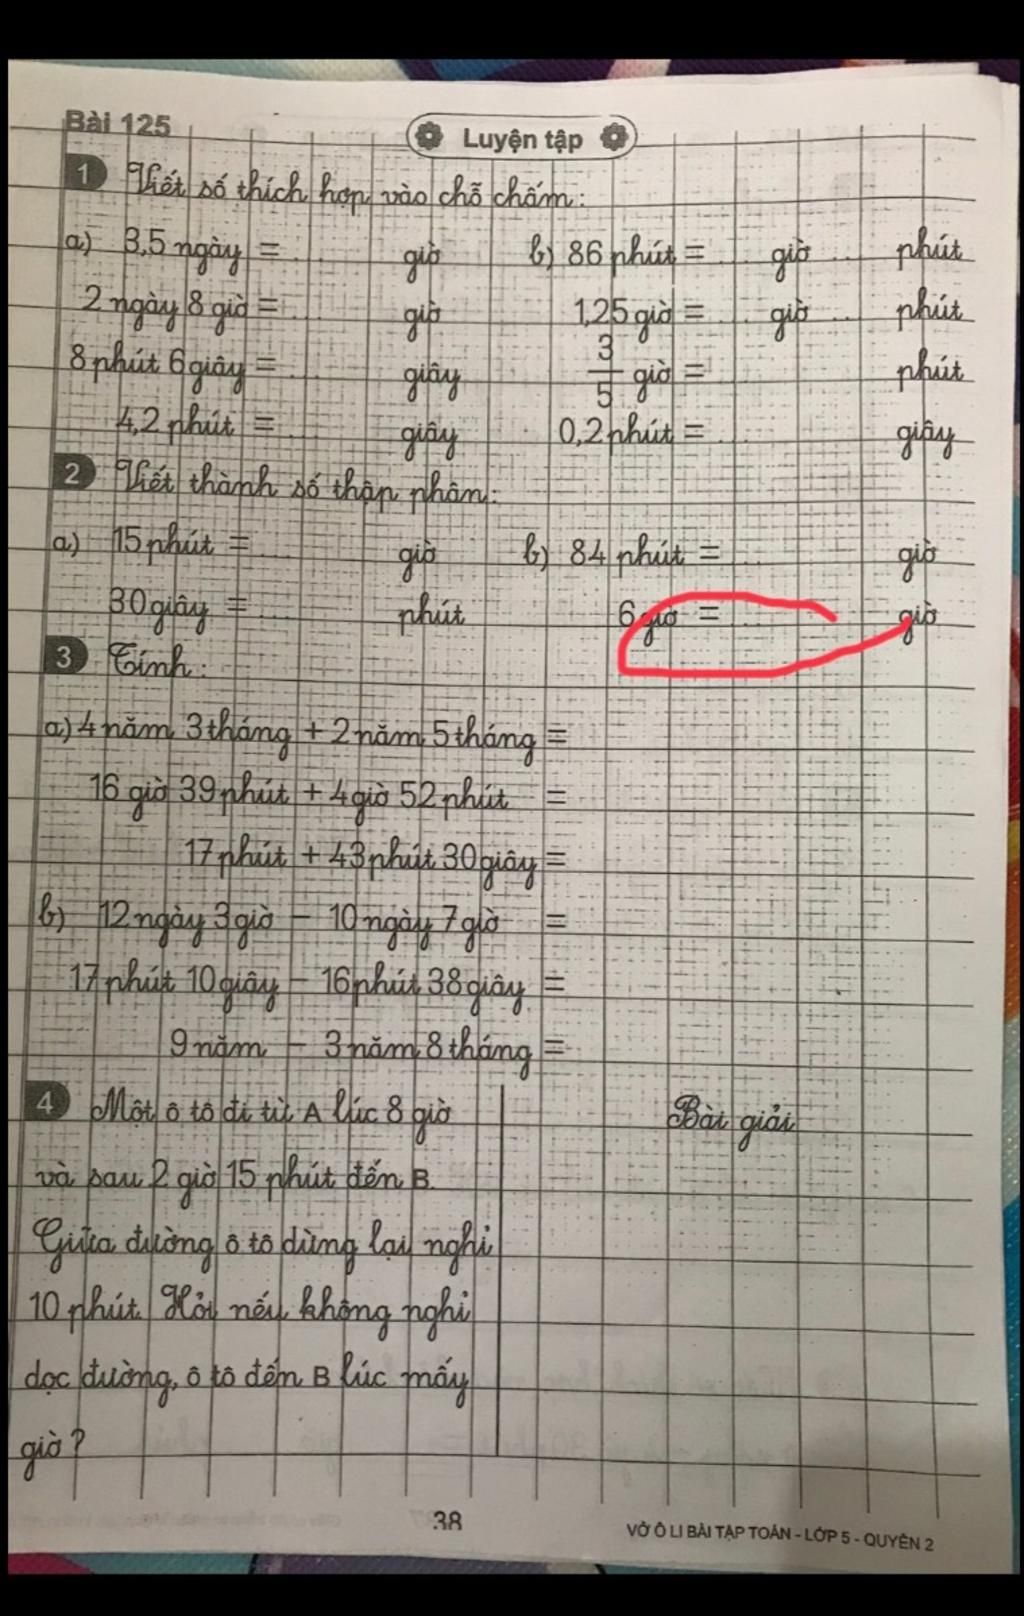 Bài 125
Luyện tập
1 Viết số thích hợp vào chỗ chấm:
a) 3,5 ngày = ..... giờ b) 86 phút = ..... giờ ..... phút
2 ngày 8 giờ = ..... giờ 1,25 giờ = ..... giờ ..... phút
8 phút 6 giây = ..... giây 3/5 giờ = ..... phút
4,2 phút = ..... giây 0,2 phút = ..... giây
2 Viết thành số thập phân:
a) 15 phút = ..... giờ b) 84 phút = ..... giờ
30 giây = ..... phút 6 giờ = ..... giờ
3 Tính:
a) 4 năm 3 tháng + 2 năm 5 tháng =
16 giờ 39 phút + 4 giờ 52 phút =
17 phút + 43 phút 30 giây =
b) 12 ngày 3 giờ - 10 ngày 7 giờ =
17 phút 10 giây - 16 phút 38 giây =
9 năm - 3 năm 8 tháng =
4 Một ô tô đi từ A lúc 8 giờ
và sau 2 giờ 15 phút đến B.
Giữa đường ô tô dừng lại nghỉ
10 phút. Hỏi nếu không nghỉ
dọc đường, ô tô đến B lúc mấy
giờ?
Bài giải
38
VỞ Ô LI BÀI TẬP TOÁN - LỚP 5 - QUYỂN 2